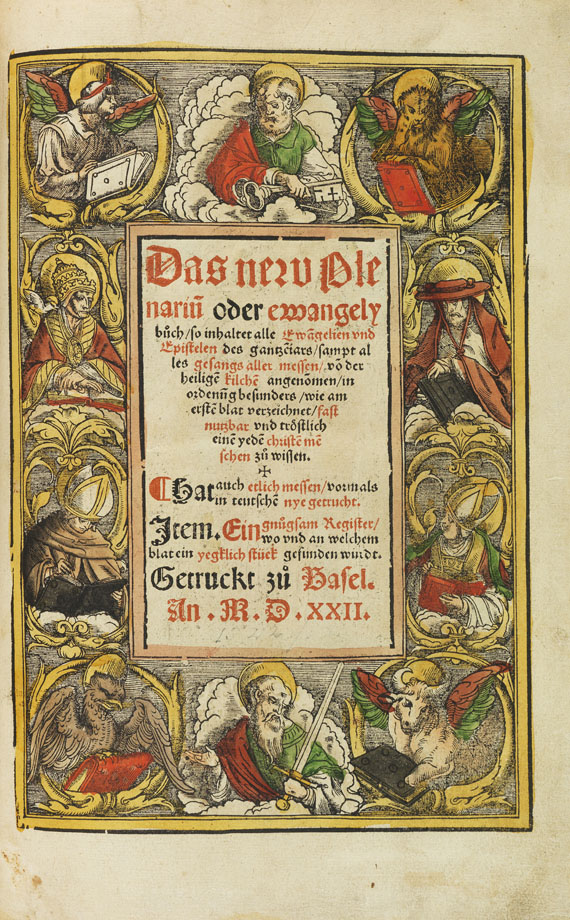 Das neru Ple
nariū oder ewangely
bůch/so inhaltet alle Ewāgelien vnd
Epistelen des gantzēiars/sampt al
les gesangs aller messen/ vō der
heiligē kilchē angenomen/in
ordenūg besunders/wie am
erstē blat verzeichnet/fast
nutzbar vnd tröstlich
einē yedē christē mē
schen zů wissen.
✢
¶ Hat auch etlich messen/vormals
in teutschē nye getruckt.
Item. Ein gnůgsam Register/
wo vnd an welchem
blat ein yegklich stück gefunden wurdt.
Getruckt zů Basel.
An . M . D . XXII.